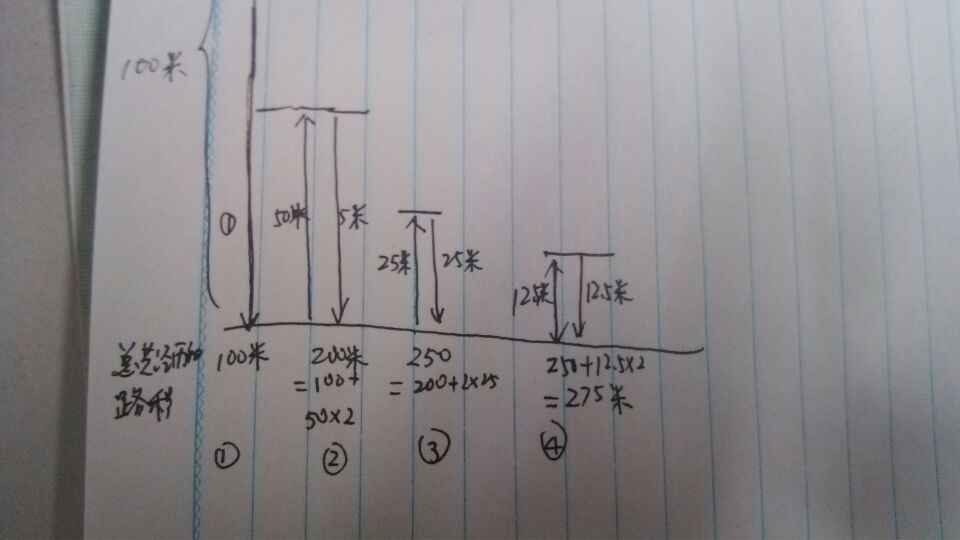 100米
①
50米
5米
25米
25米
12.5米
12.5米
路程
100米
200米
=100+
50×2
250
=200+2×25
250+12.5×2
=275米
①
②
③
④